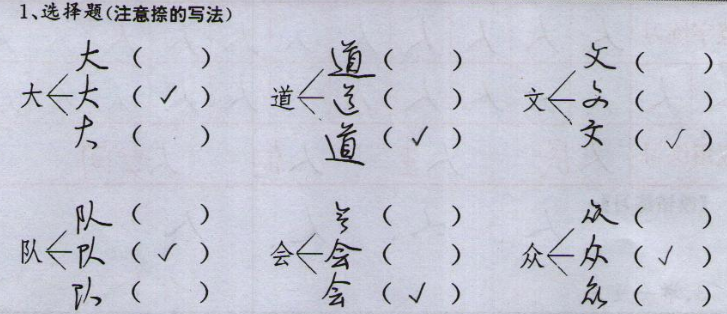 1、选择题(注意捺的写法)
大（ ） 道（ ） 文（ ）
大 大（✓） 道 道（ ） 文 文（ ）
大（ ） 道（✓） 文（✓）
队（ ） 会（ ） 众（ ）
队 队（✓） 会 会（ ） 众 众（✓）
队（ ） 会（✓） 众（ ）